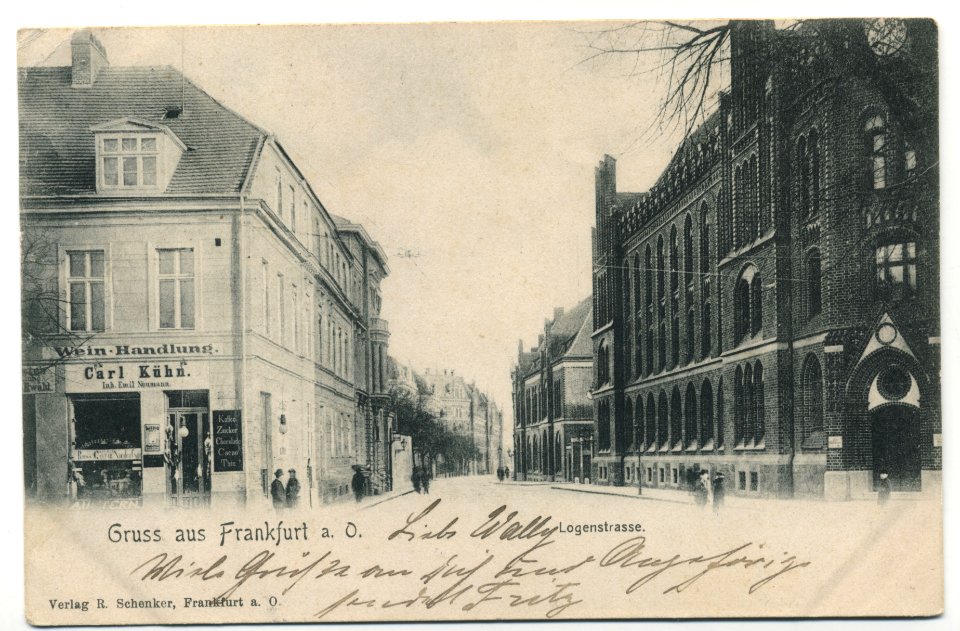 Wein-Handlung.
Carl Kühn.
Inh. Emil Neumann.
Kaffee
Zucker
Chocolade
Cacao
Thee
Gruss aus Frankfurt a. O.
Logenstrasse.
Liebe Wally
Viele Grüsse an dich und Angehörige
sendet Fritz
Verlag R. Schenker, Frankfurt a. O.